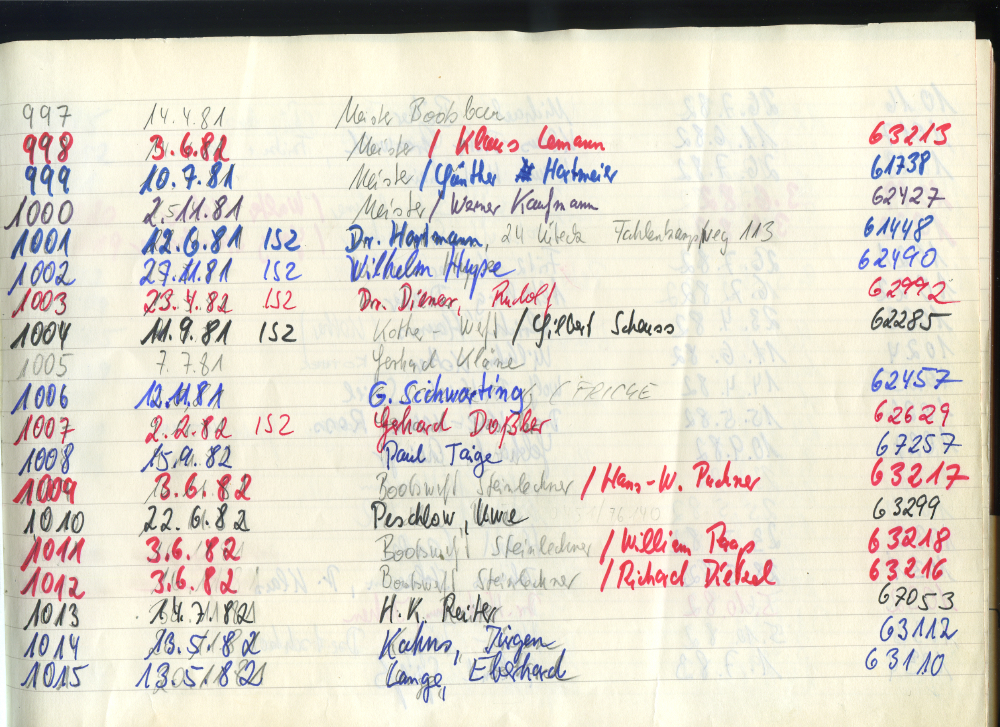 997 14.4.81 Meister Bootsbau
998 3.6.82 Meister / Klaus Lemann 63213
999 10.7.81 Meister / Günther Hartmeier 61738
1000 2.11.81 Meister / Werner Kaufmann 62427
1001 12.6.81 152 Dr. Hartmann, 24 Lübeck 113 61448
1002 27.11.81 152 Wilhelm 62490
1003 23.4.82 152 Dr. Diener, Rudolf 62992
1004 11.9.81 152 Kother-Werft / Gilbert Schauss 62285
1005 7.7.81 Gerhard Kläne
1006 12.11.81 G. Schwarting 62457
1007 2.2.82 152 Gerhard Doßler 62629
1008 15.9.82 Paul Taige 67257
1009 3.6.82 Bootswerft Steinlechner / Hans-W. Puchner 63217
1010 22.6.82 Peschlow, Uwe 63299
1011 3.6.82 Bootswerft Steinlechner / William Paap 63218
1012 3.6.82 Bootswerft Steinlechner / Richard 63216
1013 14.7.82 H.K. Reiter 67053
1014 13.5.82 Kahns, Jürgen 63112
1015 13.05.82 Lange, Eberhard 63110